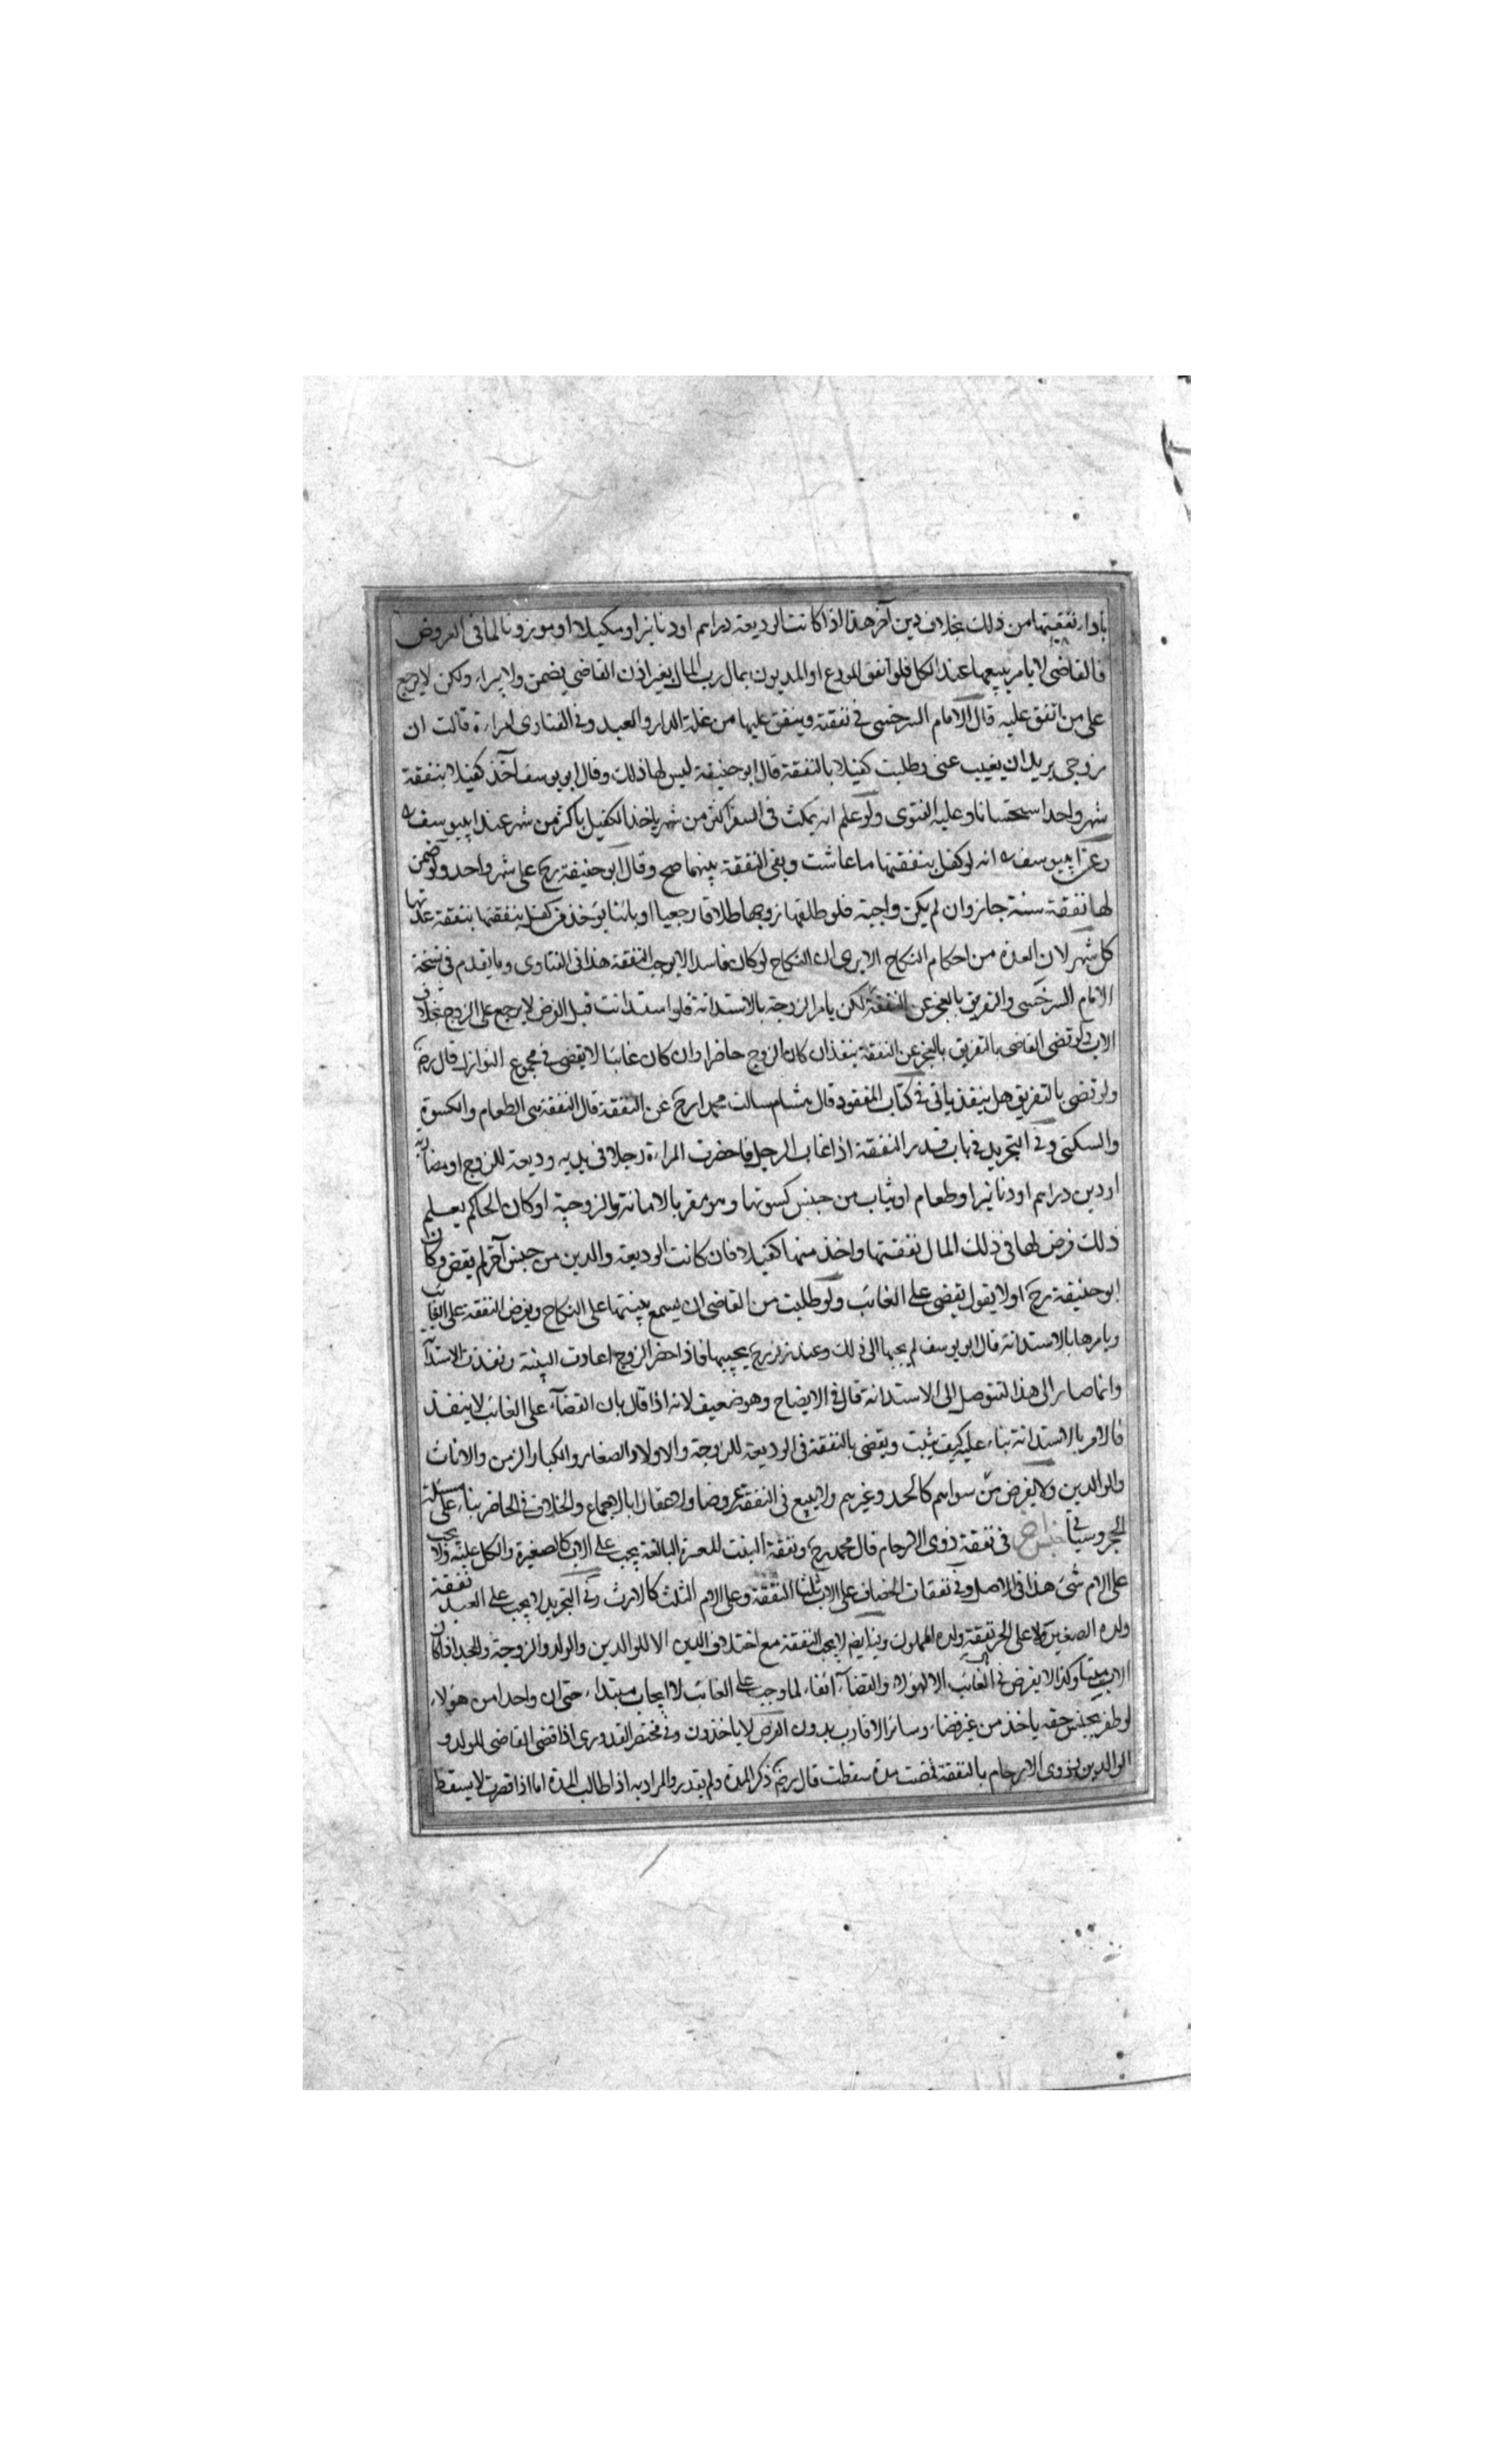 باداء نفقتها من ذلك بخلاف دين آخر هذا اذا كانت الوديعة دراهم او دنانير او مكيلا او موزونا اما في العروض
فالقاضي لا يامر ببيعها عند الكل فلو انفق المودع او المديون بمال رب المال بغير اذن القاضي يضمن ولا يبراء ولكن لا يرجع
على من انفق عليه قال الامام السرخسي في نفقته وينفق عليها من غلة الدار والعبد وفي الفتاوى امراءة قالت ان
زوجي يريد ان يغيب عني وطلبت كفيلا بالنفقة قال ابو حنيفة ليس لها ذلك وقال ابو يوسف آخذ كفيلا بنفقة
شهر واحد استحسانا وعليه الفتوى ولو علم انه يمكث في السفر اكثر من شهر ياخذ الكفيل باكثر من شهر عند ابي يوسف
وعن ابي يوسف انه لو كفل بنفقتها ما عاشت وبقي النفقة بينهما صح وقال ابو حنيفة رح على شهر واحد ولو ضمن
لها نفقة سنة جاز وان لم يكن واجبة فلو طلقها زوجها طلاقا رجعيا او بائنا يؤخذ من كفيل بنفقتها بنفقة عدتها
كل شهر لان العدة من احكام النكاح الا يرى ان النكاح لو كان فاسدا لا يوجب النفقة هذا في الفتاوى وما يقدم في نسخة
الامام السرخسي والتفريق بالعجز عن النفقة لكن يامر الزوجة بالاستدانة فلو استدانت قبل الفرض لا يرجع على الزوج بخلاف
الاب ولو قضى القاضي بالتفريق بالعجز عن النفقة ينفذ ان كان الزوج حاضرا وان كان غائبا لا يقضى في مجموع النوازل قال رضه
ولو قضى بالتفريق هل ينفذ ياتي في كتاب المفقود قال هشام سالت محمدا رح عن النفقة قال النفقة هي الطعام والكسوة
والسكنى وفي التجريد في باب قدر النفقة اذا غاب الرجل فاحضرت المراءة رجلا في يديه وديعة للزوج او مضاربة
او دين دراهم او دنانير او طعام او ثياب من جنس كسوتها وهو مقر بالامانة والزوجية او كان الحاكم يعلم
ذلك فرض لها في ذلك المال نفقتها واخذ منها كفيلا فان كانت الوديعة والدين من جنس آخر لم يقض وكان
ابو حنيفة رح اولا يقول يقضى على الغائب ولو طلبت من القاضي ان يسمع بينتها على النكاح ويفرض النفقة على الغائب
ويامرها بالاستدانة قال ابو يوسف لم يجبها الى ذلك وعند زفر رح يجيبها فاذا حضر الزوج اعادت البينة ونفذت الاستدآ
وانما صار الى هذا لتتوصل الى الاستدانة قال في الايضاح وهو ضعيف لانه اذا قال بان القضآء على الغائب لا ينفذ
فالامر بالاستدانة بناء عليه كيف يثبت ويقضى بالنفقة في الوديعة للزوجة والاولاد الصغار والكبار الزمن والاناث
والوالدين ولا يفرض من سواهم كالجد وغيرهم ولا يبيع في النفقة عروضا ولا عقارا بالاجماع والخلاف في الحاضر بناء على مسئلة
الحجر وسياتي في نفقة ذوي الارحام قال محمد رح ونفقة البنت المعسرة البالغة يجب على الاب كالصغيرة والكل عليه ولا يجب
على الام شئ هذا في الاصل وفي نفقات الخصاف على الاب ثلثا النفقة وعلى الام الثلث كالارث وفي التجريد لا يجب على العبد نفقة
ولده الصغير ولا على الحر نفقة ولده المملوك وفيه ايضا لا يجب النفقة مع اختلاف الدين الا للوالدين والولد والزوجة والجد اذا كان
الاب ميتا وكذا لا يفرض في الغائب الا لهؤلاء والقضآء ايفاء لما وجب على الغائب لا ايجاب مبتداء حتى ان واحدا من هؤلاء
لو ظفر بجنس حقه ياخذ من غير قضاء وسائر الاقارب بدون الفرض لا ياخذون وفي مختصر القدوري اذا قضى القاضي للولد و
الوالدين وذوي الارحام بالنفقة فمضت مدة سقطت قال رضه ذكر المدة ولم يقدر والمراد به اذا طالت المدة اما اذا قصرت لا يسقط